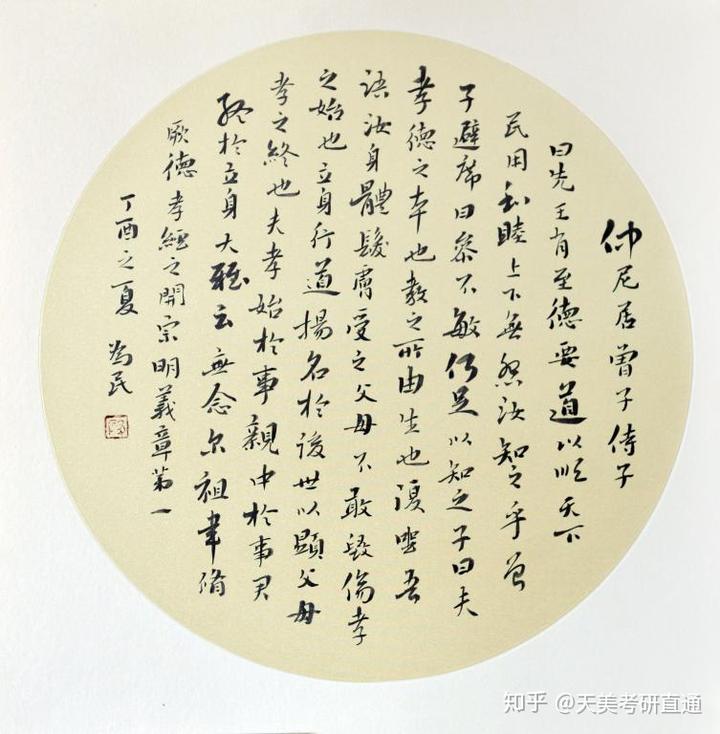 仲尼居曾子侍子
曰先王有至德要道以順天下
民用和睦上下無怨汝知之乎曾
子避席曰參不敏何足以知之子曰夫
孝德之本也教之所由生也復坐吾
語汝身體髮膚受之父母不敢毀傷孝
之始也立身行道揚名於後世以顯父母
孝之終也夫孝始於事親中於事君
終於立身大雅云無念尔祖聿脩
厥德孝經之開宗明義章第一
丁酉之夏 為民
知乎 @天美考研直通